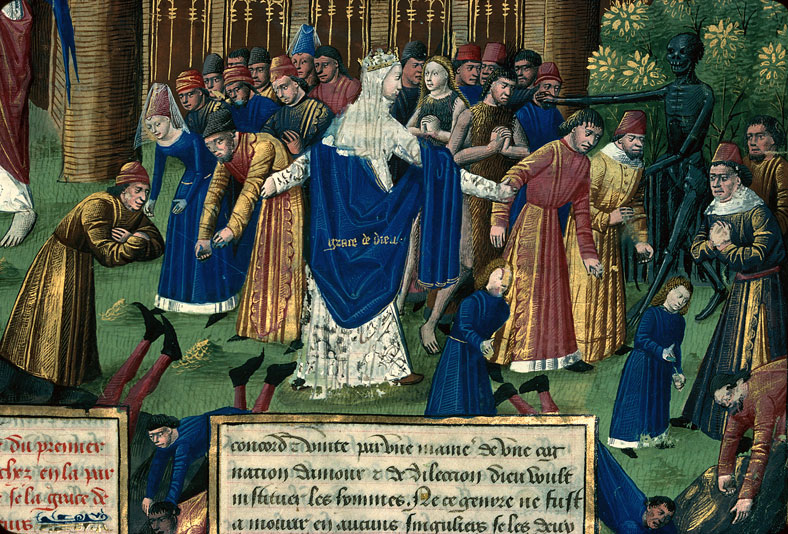 grace de dieu
e du premier
cher en la par
se la grace de
concorde dunite par vne maniere de vne cog
nation damour & de dilection dieu voult
instituer les hommes. Ne ce genre ne fust
a mourir en aucuns singuliers se les deux